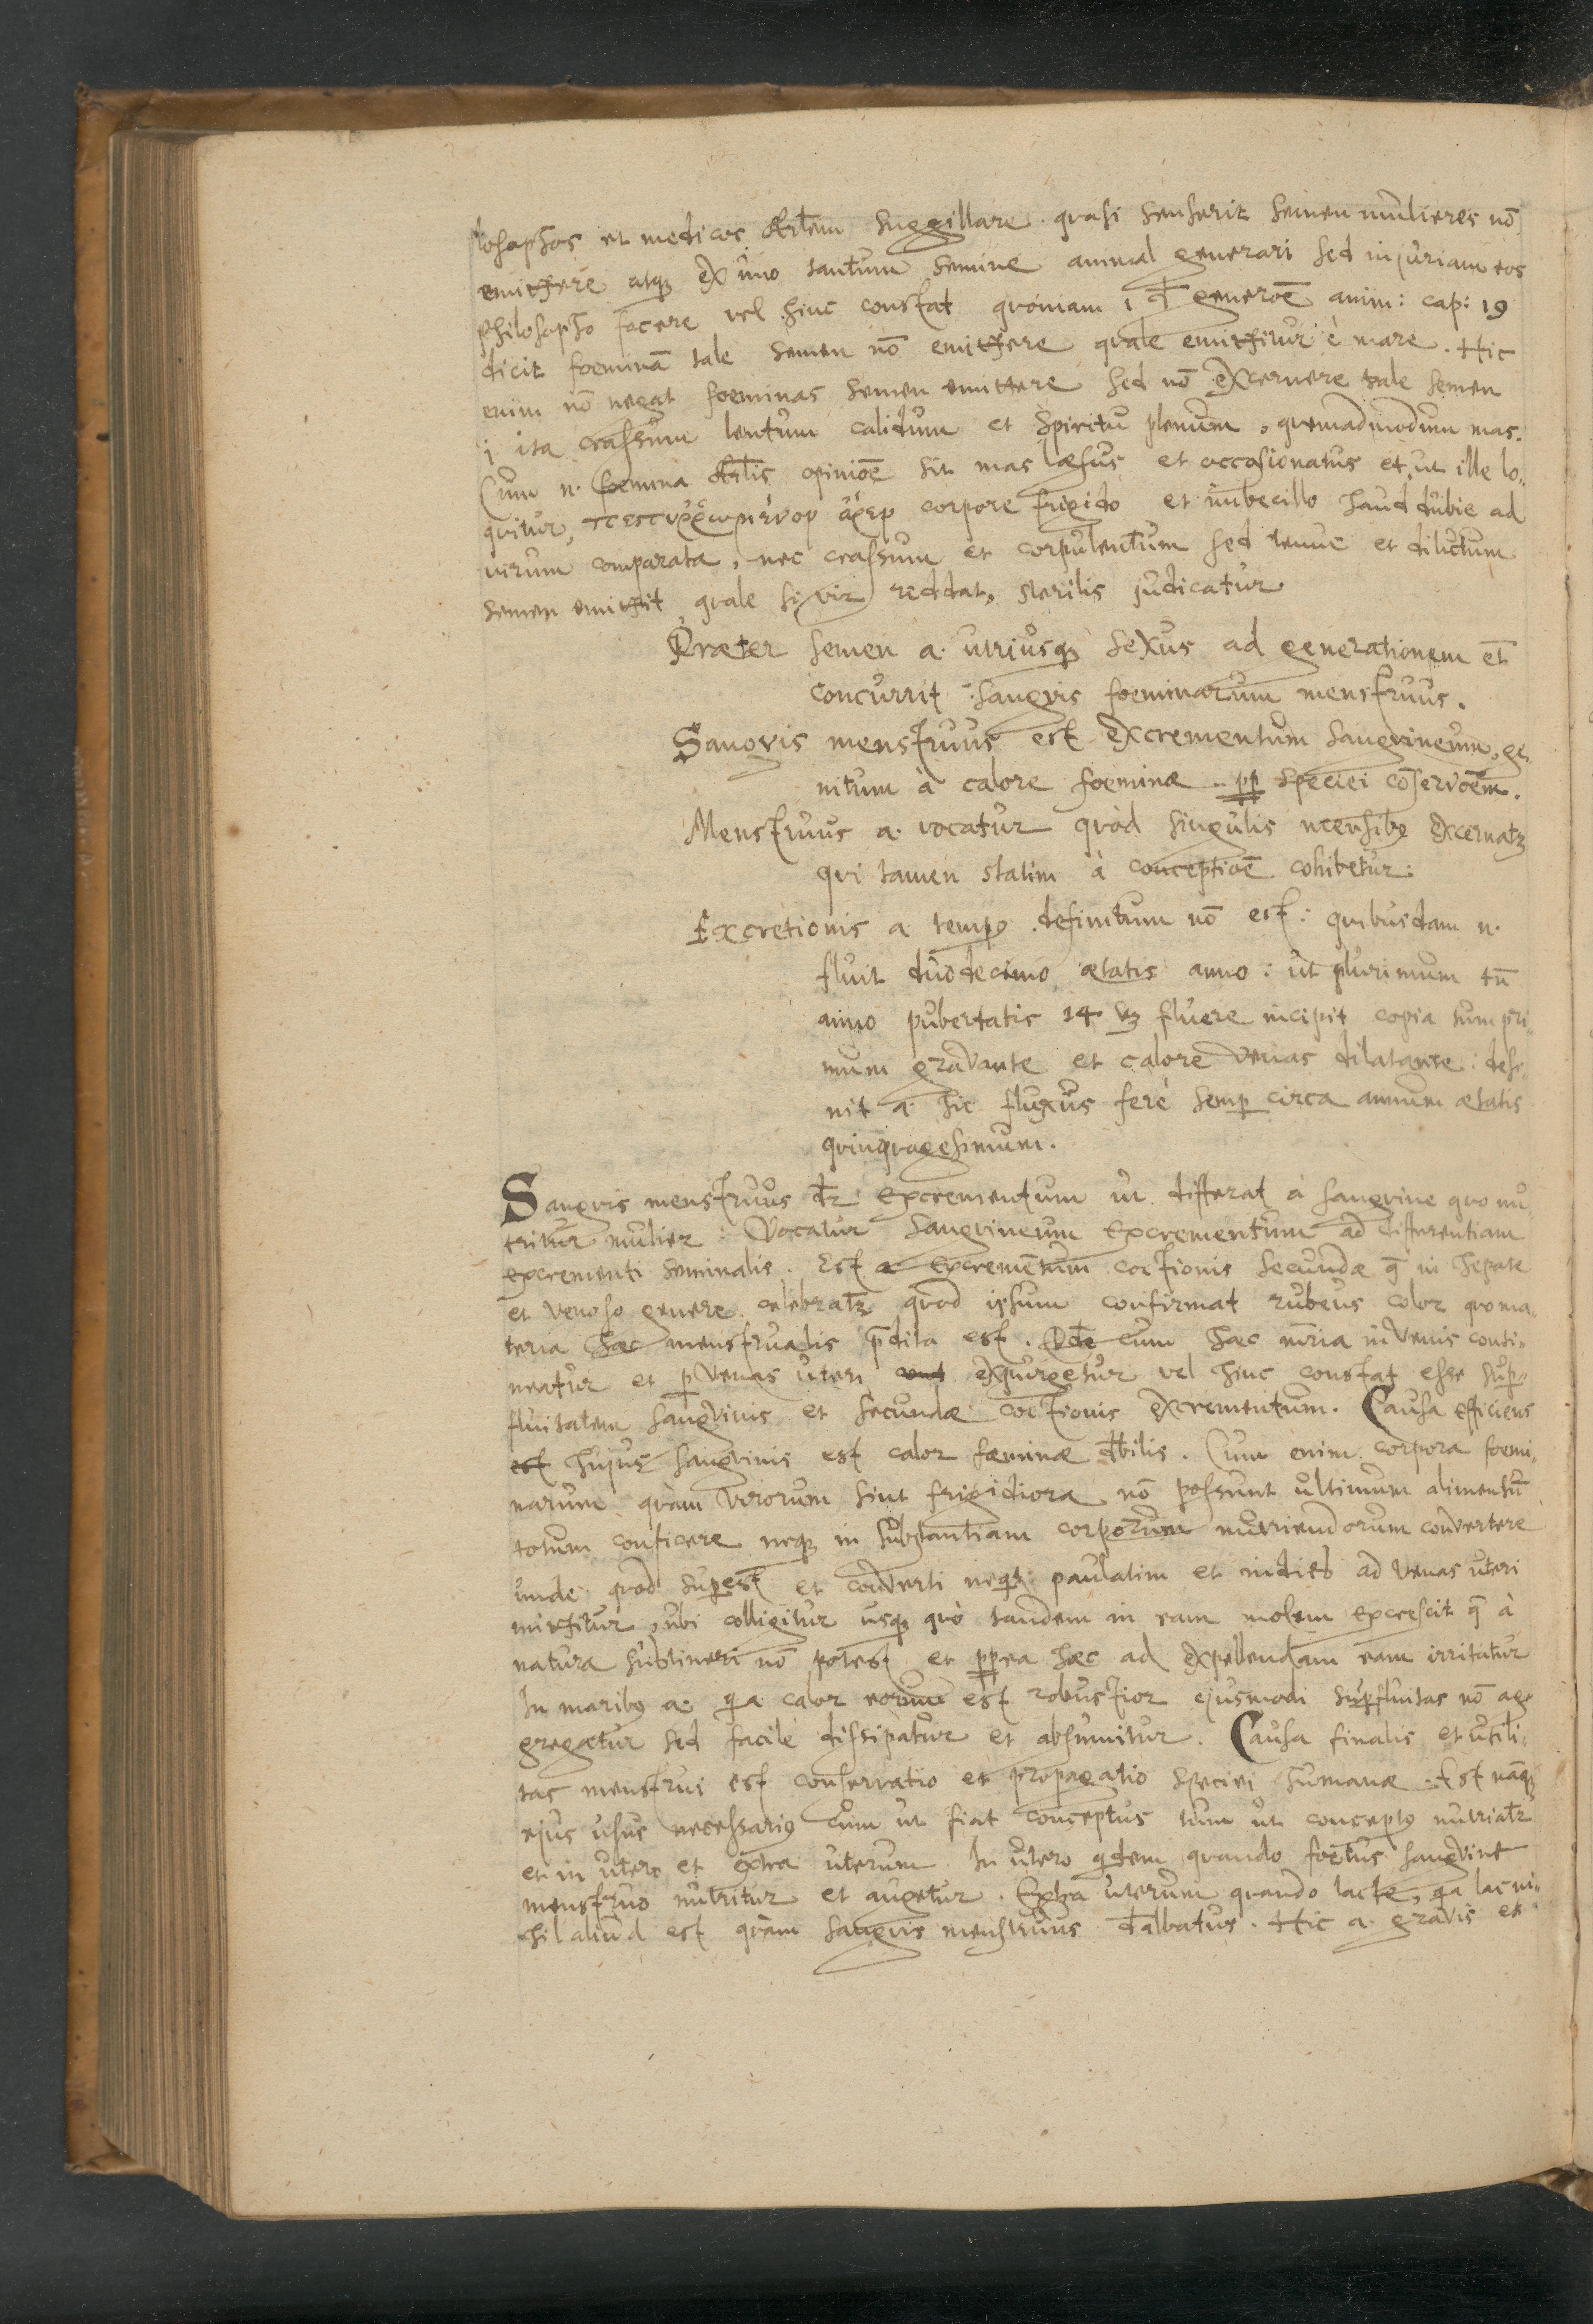 losophos et medicos Artlem suggillare. quasi senserit semen mulieres nō
emittere atqꝫ ex uno tantum semine animal generari sed injuriam eos
philosopho facere vel hinc constat quoniam 1 đ generoē anim: cap: 19
dicit foeminā tale semen nō emittere quale emittitur è mare. Hic
enim nō negat foeminas semen emittere sed nō excernere tale semen
i ita crassum lentum calidum et spiritu plenum, quemadmodum mas.
Cum n. foemina Artlis opinioē sit mas læsus et occasionatus et, ut ille lo-
quitur, corpore frigido et imbecillo haud dubie ad
virum comparata, nec crassum et corpulentum sed tenue et dilutum
semen emittit quale si vir reddat, sterilis judicatur.
Præter semen a. utriusqꝫ sexus ad generationem et̄
concurrit sangvis foeminarum menstruus.
Sangvis menstruus est excrementum sangvineum, ge-
nitum à calore foeminæ pp speciei cōservoēm.
Menstruus a. vocatur quòd singulis mensibꝰ excernatꝛ
qui tamen statim à conceptioē cohibetur:
Excretionis a. tempꝰ definitum nō est: quibusdam n.
fluit duodecimo ætatis anno: ut plurimum tn̄
anno pubertatis 14 fluere incipit copia tum pri-
mum gravante et calore venas dilatante: desi-
nit a. hic fluxus ferè semp circa annum ætatis
quinquagesimum.
Sangvis menstruus dr̄ excrementum ut differat à sangvine quo nu-
tritur mulier: Vocatur sangvineum excrementum ad differentiam
excrementi seminalis. Est a excrementum coctionis secundæ q̄ in hepate
et venoso genere celebratꝛ quod ipsum confirmat rubeus color quo ma-
teria hæc menstrualis p̄dita est. Dde cum hæc mr̄ia in venis conti-
neatur et p venas uteri expurgetur vel hinc constat esse sup-
fluitatem sangvinis et secundæ coctionis excrementum. Causa efficiens
est hujus sangvinis est calor fæminæ dbilis. Cum enim corpora foemi-
narum quàm virorum sint frigidiora nō possunt ultimum alimentū
totum conficere neqꝫ in substantiam corporum nutriendorum convertere
unde quod supest et converti neqt paulatim et indies ad venas uteri
mittitur, ubi colligitur usqꝫ quò tandem in eam molem excrescit q̄ à
natura sustineri nō potest et ppea hæc ad expellendam eam irritatur
In maribꝰ a. qa calor eorum est robustior ejusmodi supfluitas nō ag-
gregatur sed facilè dissipatur et absumitur. Causa finalis et utili-
tas menstrui est conservatio et propagatio speciei humanæ. Est nāqꝫ
ejus usus necessariꝰ cum ut fiat conceptus tum ut conceptꝰ nutriatꝛ
et in utero et extra uterum. In utero qdem quando foetus sangvine
menstruo nutritur et augetur. Extra uterum quando lacte, qa lac ni-
hil aliud est quàm sangvis menstruus dalbatus. Hic a. gravis et